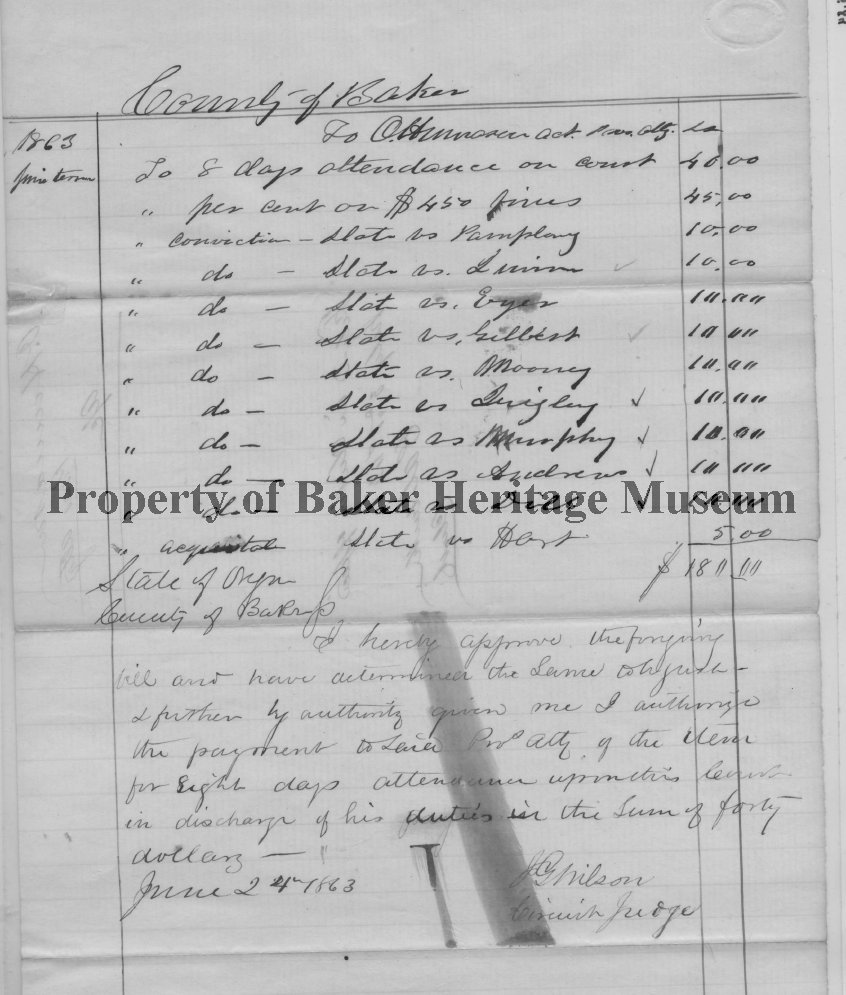 County of Baker
1863 To O. Humason act. Pros. Atty. Dr
June term To 8 days attendance on court 40.00
" per cent on $450 fines 45.00
" conviction – State vs Pamplony 10.00
" do – State vs. Quinn 10.00
" do – State vs. 10.00
" do – State vs. Gilbert 10.00
" do – State vs. Mooney 10.00
" do – State vs Quigley 10.00
" do – State vs Murphy 10.00
" do – State vs Andrews 10.00
" do – State vs 10.00
Property of Baker Heritage Museum
" acquittal State vs Hart 5.00
$ 180.00
State of Oregon
County of Baker
I hereby approve the forgoing
bill and have determined the same to be just –
& further by authority given me I authorize
the payment to said Pros Atty of the item
for Eight days attendance upon this Court
in discharge of his duties in the Sum of forty
dollars — "
June 24th 1863 J G Wilson
Circuit Judge